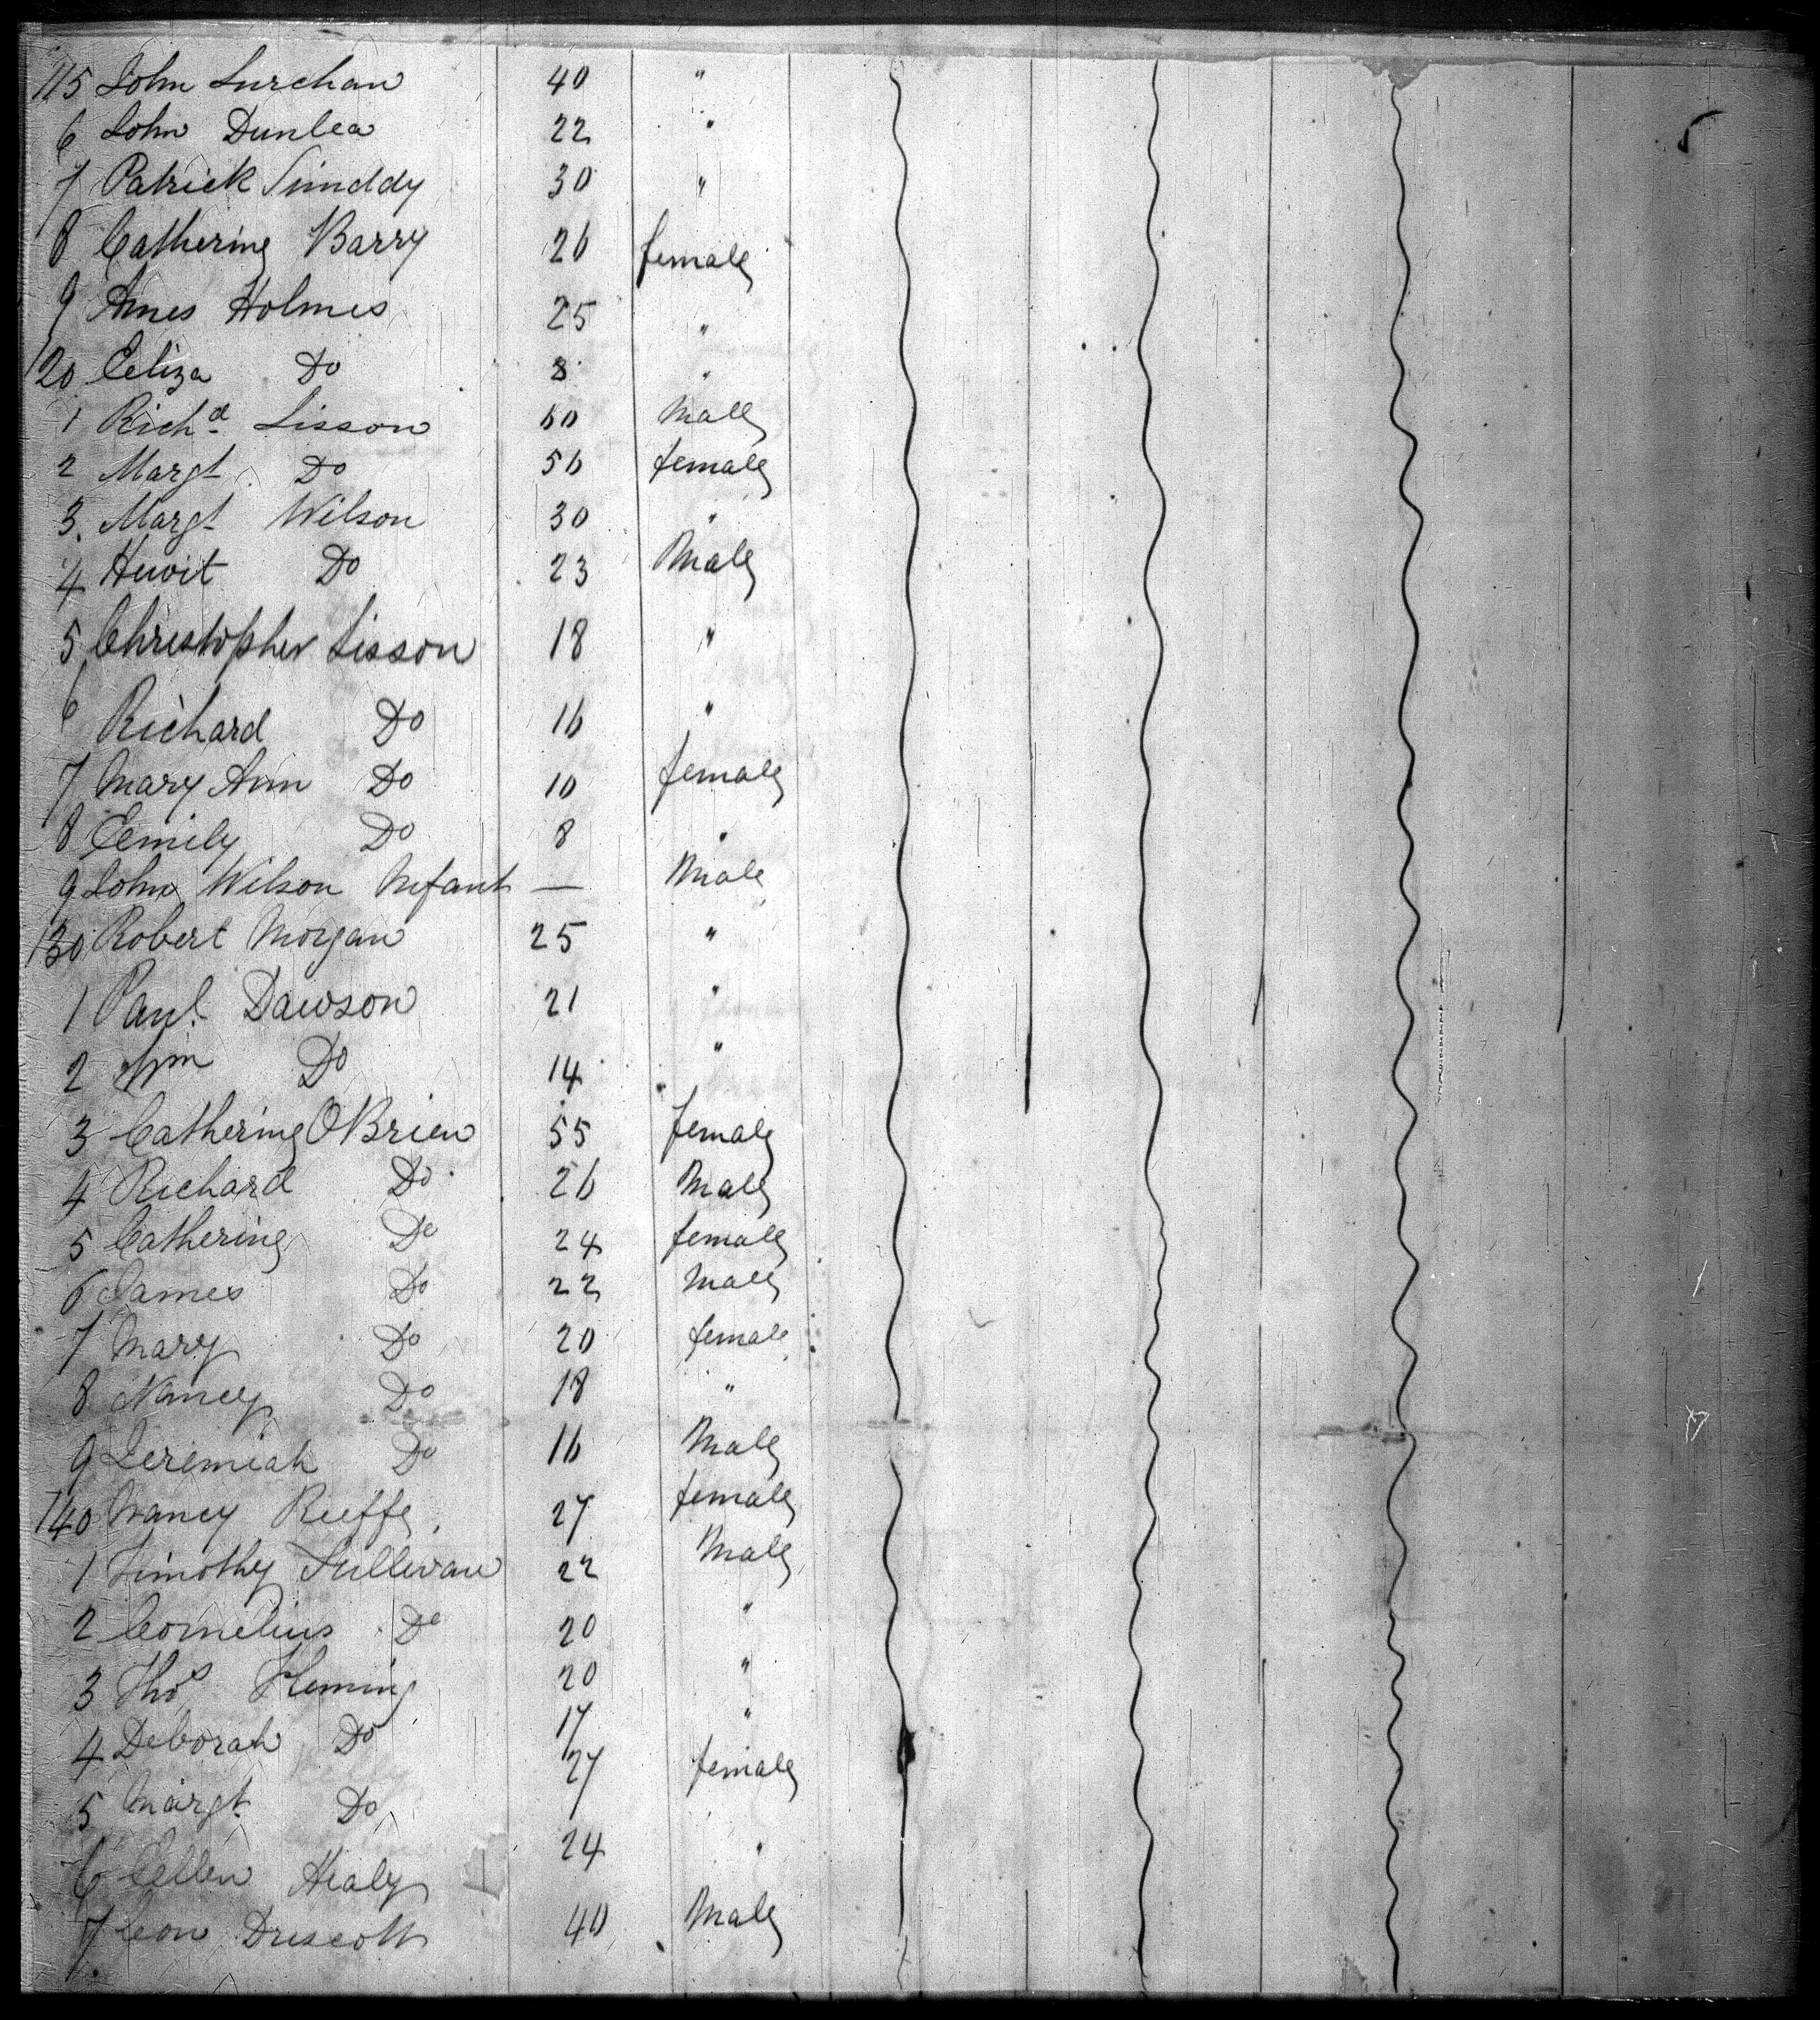 115 John Lurchan 40 "
6 John Dunlea 22 "
7 Patrick 30 "
8 Catherine Barry 26 female
9 Holmes 25 "
120 Eeliza Do 8 "
1 Richd Sisson 60 Male
2 Margt Do 56 female
3 Margt Wilson 30 "
4 Hewit Do 23 Male
5 Christopher Sisson 18 "
6 Richard Do 16 "
7 Mary Ann Do 10 female
8 Eemily Do 8 "
9 John Wilson Infant — Male
130 Robert Morgan 25 "
1 Paul Dawson 21 "
2 Wm Do 14 "
3 Catherine OBrien 55 female
4 Richard Do 26 Male
5 Catherine Do 24 female
6 James Do 22 Male
7 Mary Do 20 female
8 Nancy Do 18 "
9 Jeremiah Do 16 Male
140 Nancy Keeffe 27 female
1 Timothy Sullivan 22 Male
2 Cornelius Do 20 "
3 Thos Fleming 20 "
4 Deborah Do 17 "
5 Margt Do 27 female
6 Eellen Healy 24 "
7 Con Driscoll 40 Male